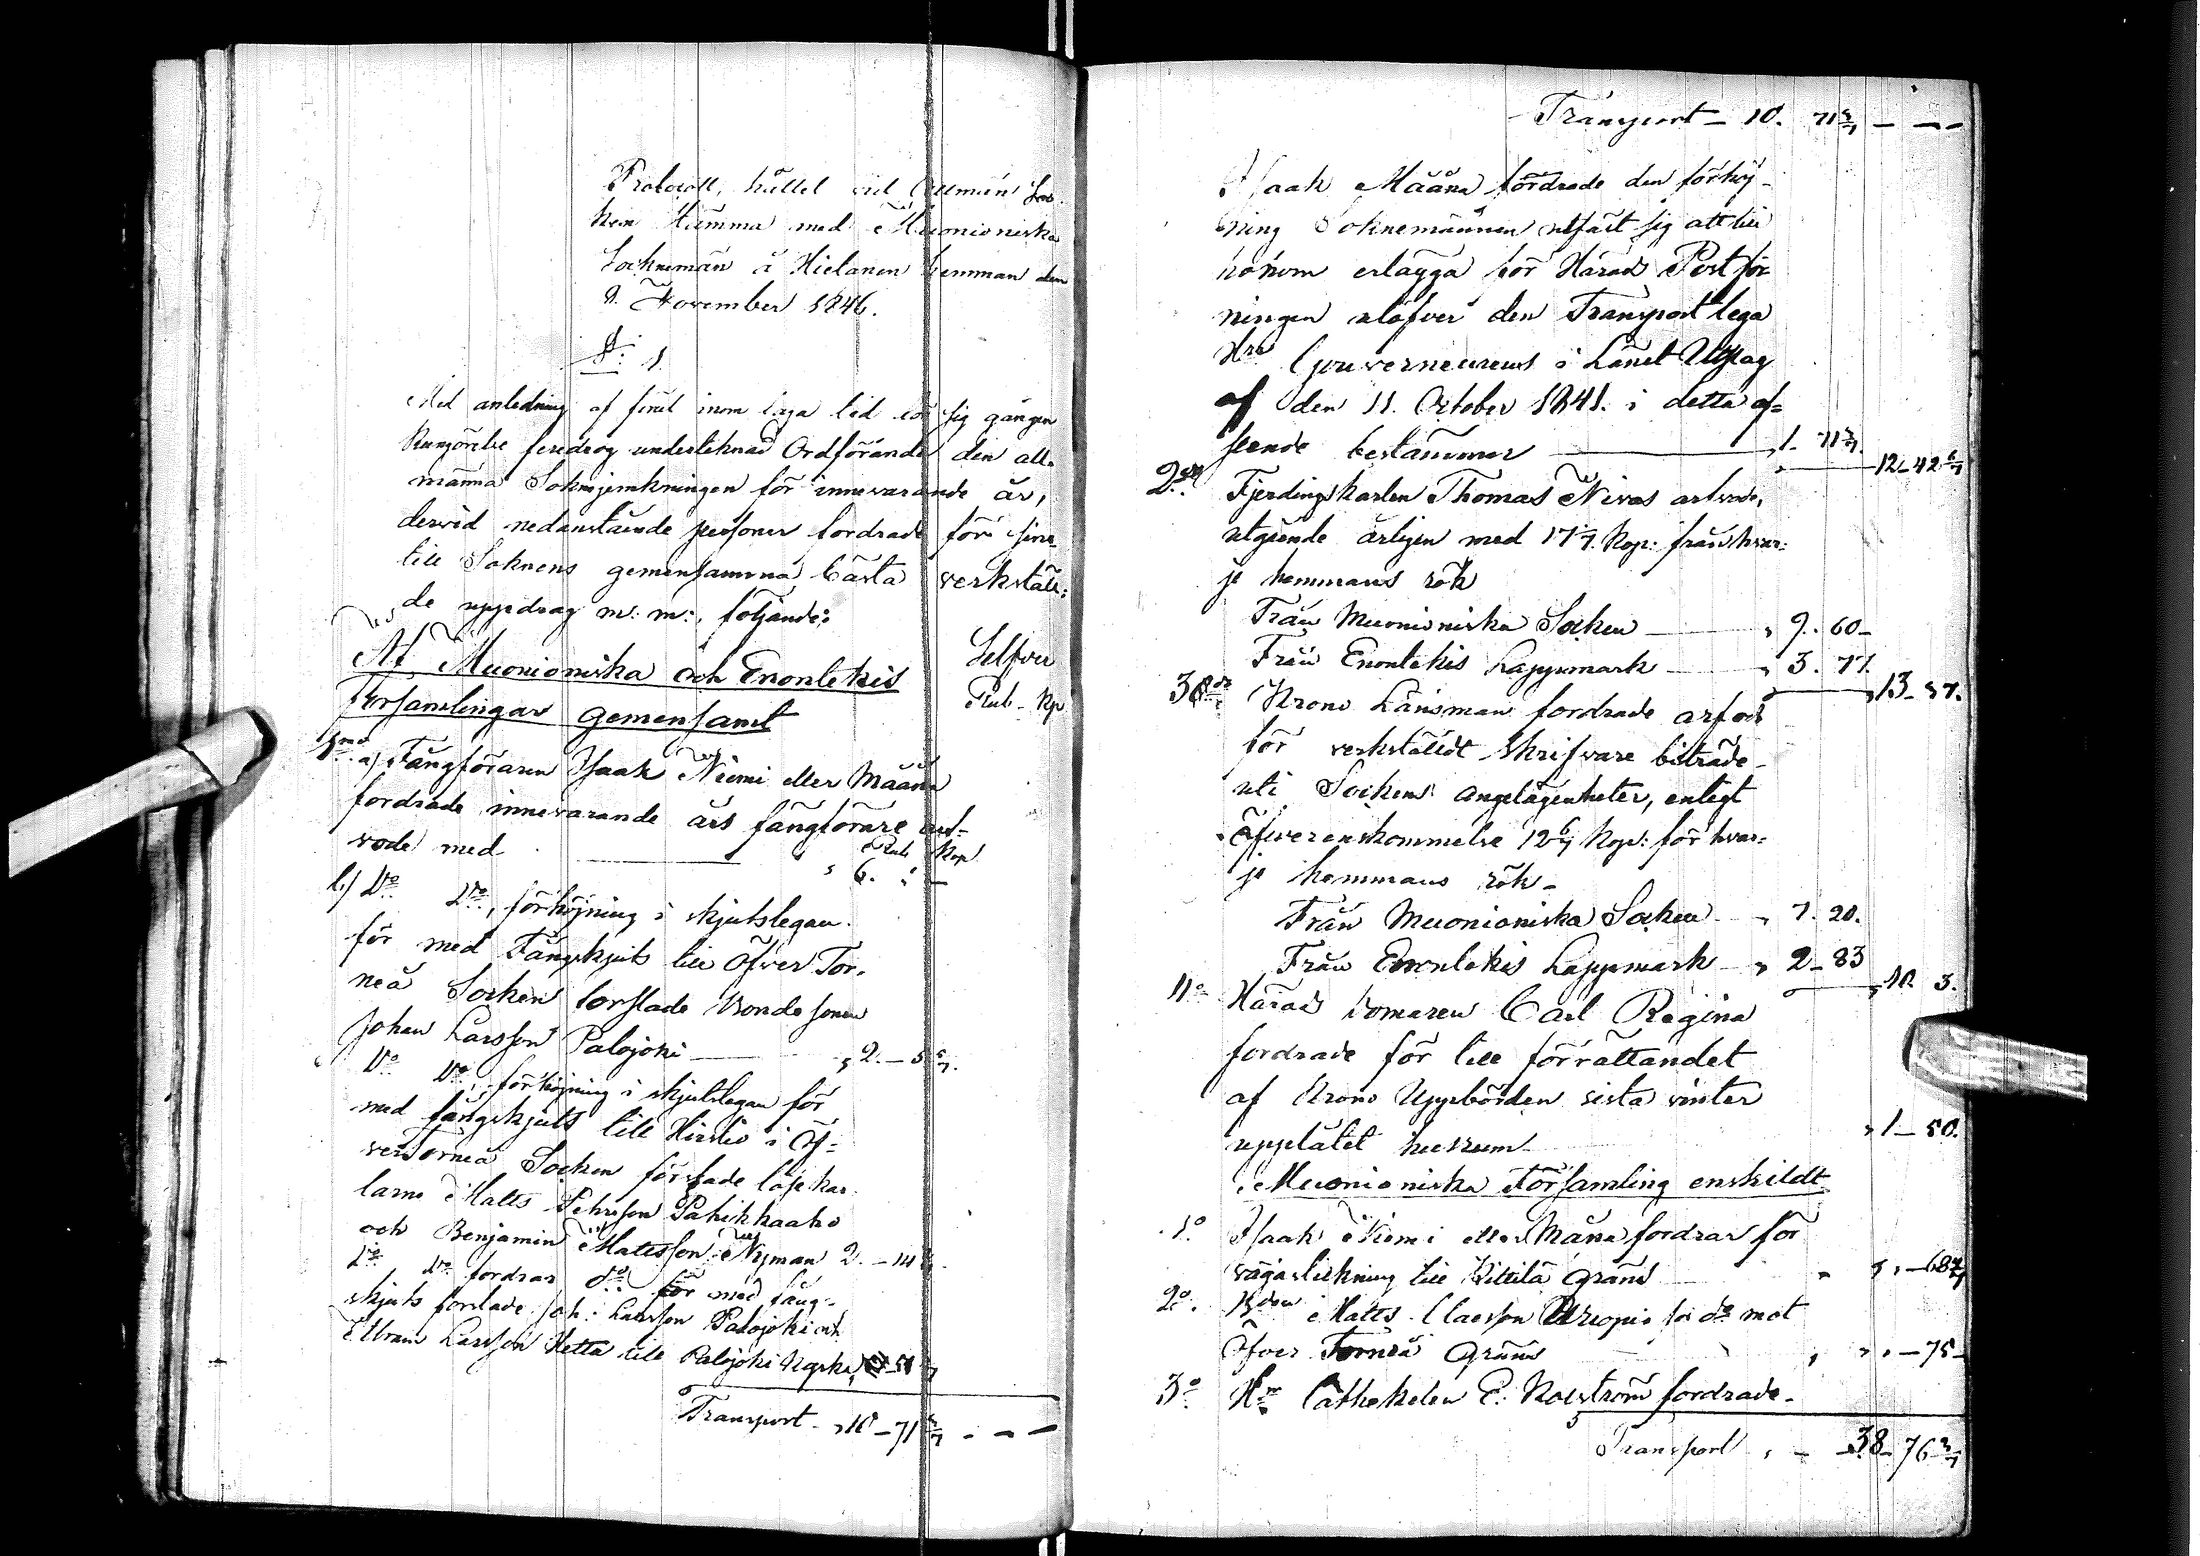 Protocoll, hållet vid Allmän Soc-
ken Stämma med Muonioniska
Sockneman å Hietanen hemman den
9. November 1846.
§. 1.
Med anledning af förut inom laga tid för sig gången
Kungörelse föredrog undertecknad Ordförande den all-
männa Soknejemkningen för innevarande år,
dervid nedanstående personer fordrade för sine
till Soknens gemensamma bästa verkstäl-
de uppdrag m: m:, följande:
Af Muonioniska och Enontekis
Församlingar gemensamt
Silfver
Rub. Kop
1mo a) Fångföraren Isaak Niemi eller Määnä
fordrade innevarande års fångförare arf-
vode med
Rub Kop
" 6. " –
b) Do Do, förhöjning i skjutslegan
för med Fångskjuts till Öfver Tor-
neå Socken forslade Bondesonen
Johan Larsson Palojoki " 2. – 5 5/7.
Do Do, förhöjning i skjutslegan för
med fångskjuts till Hirstiö i Öf-
verTorneå Socken förslade löskar-
larne Matts Pehrsson Pahikkaaho
och Benjamin Mattsson Nyman 2. – 14
Do Do fordrar do för med fång-
skjuts forslade Joh: Larsson Palojoki och
Abram Larsson Hetta till Palojoki
Transport " 10 – 71 3/7 – – –
Transport – 10. 71 3/7 – – –
Isaak Määnä fordrade den förhöj-
ning Soknemännen utfäst sig att till
honom erlägga för Härads Postför
ningen utöfver den Transport lega
Hrs Gouverneurens i Länet Utslag
af den 11. October 1841. i detta af-
seende bestämmer 1. 71 3/7. 12–42 6/7
2do Fjerdingskarlen Thomas Nivas arfvode,
utgående årligen med 17 1/7. Kop: från hvar-
je hemmans rök
Från Muonioniska Socken " 9. 60–
Från Enontekis Lappmark " 3. 77.
13–37.
3o Krono Länsman fordrade arfvode
för verkstäldt skrifvare biträde
uti Sockens angelägenheter, enligt
öfverenskommelse 12 6/7 Kop: för hvar-
je hemmans rök–
Från Muonioniska Socken " 7. 20.
Från Enontekis Lappmark " 2–83
10. 3.
4o Härads Domaren Carl Regina
fordrade för till förrättandet
af Krono Uppbörden sista vinter
upplåtet husrum " 1–50.
Muonioniska Församling enskildt
1o Isaak Niemi eller Määnä fordrar för
vägastickning till Kittilä Gräns
2o. Bden Matts Claesson för do mot
Öfver Torneå Gräns " " –75–
3o Hr Cathekelen E. fordrade–
Transport " – 38– 76 3/7